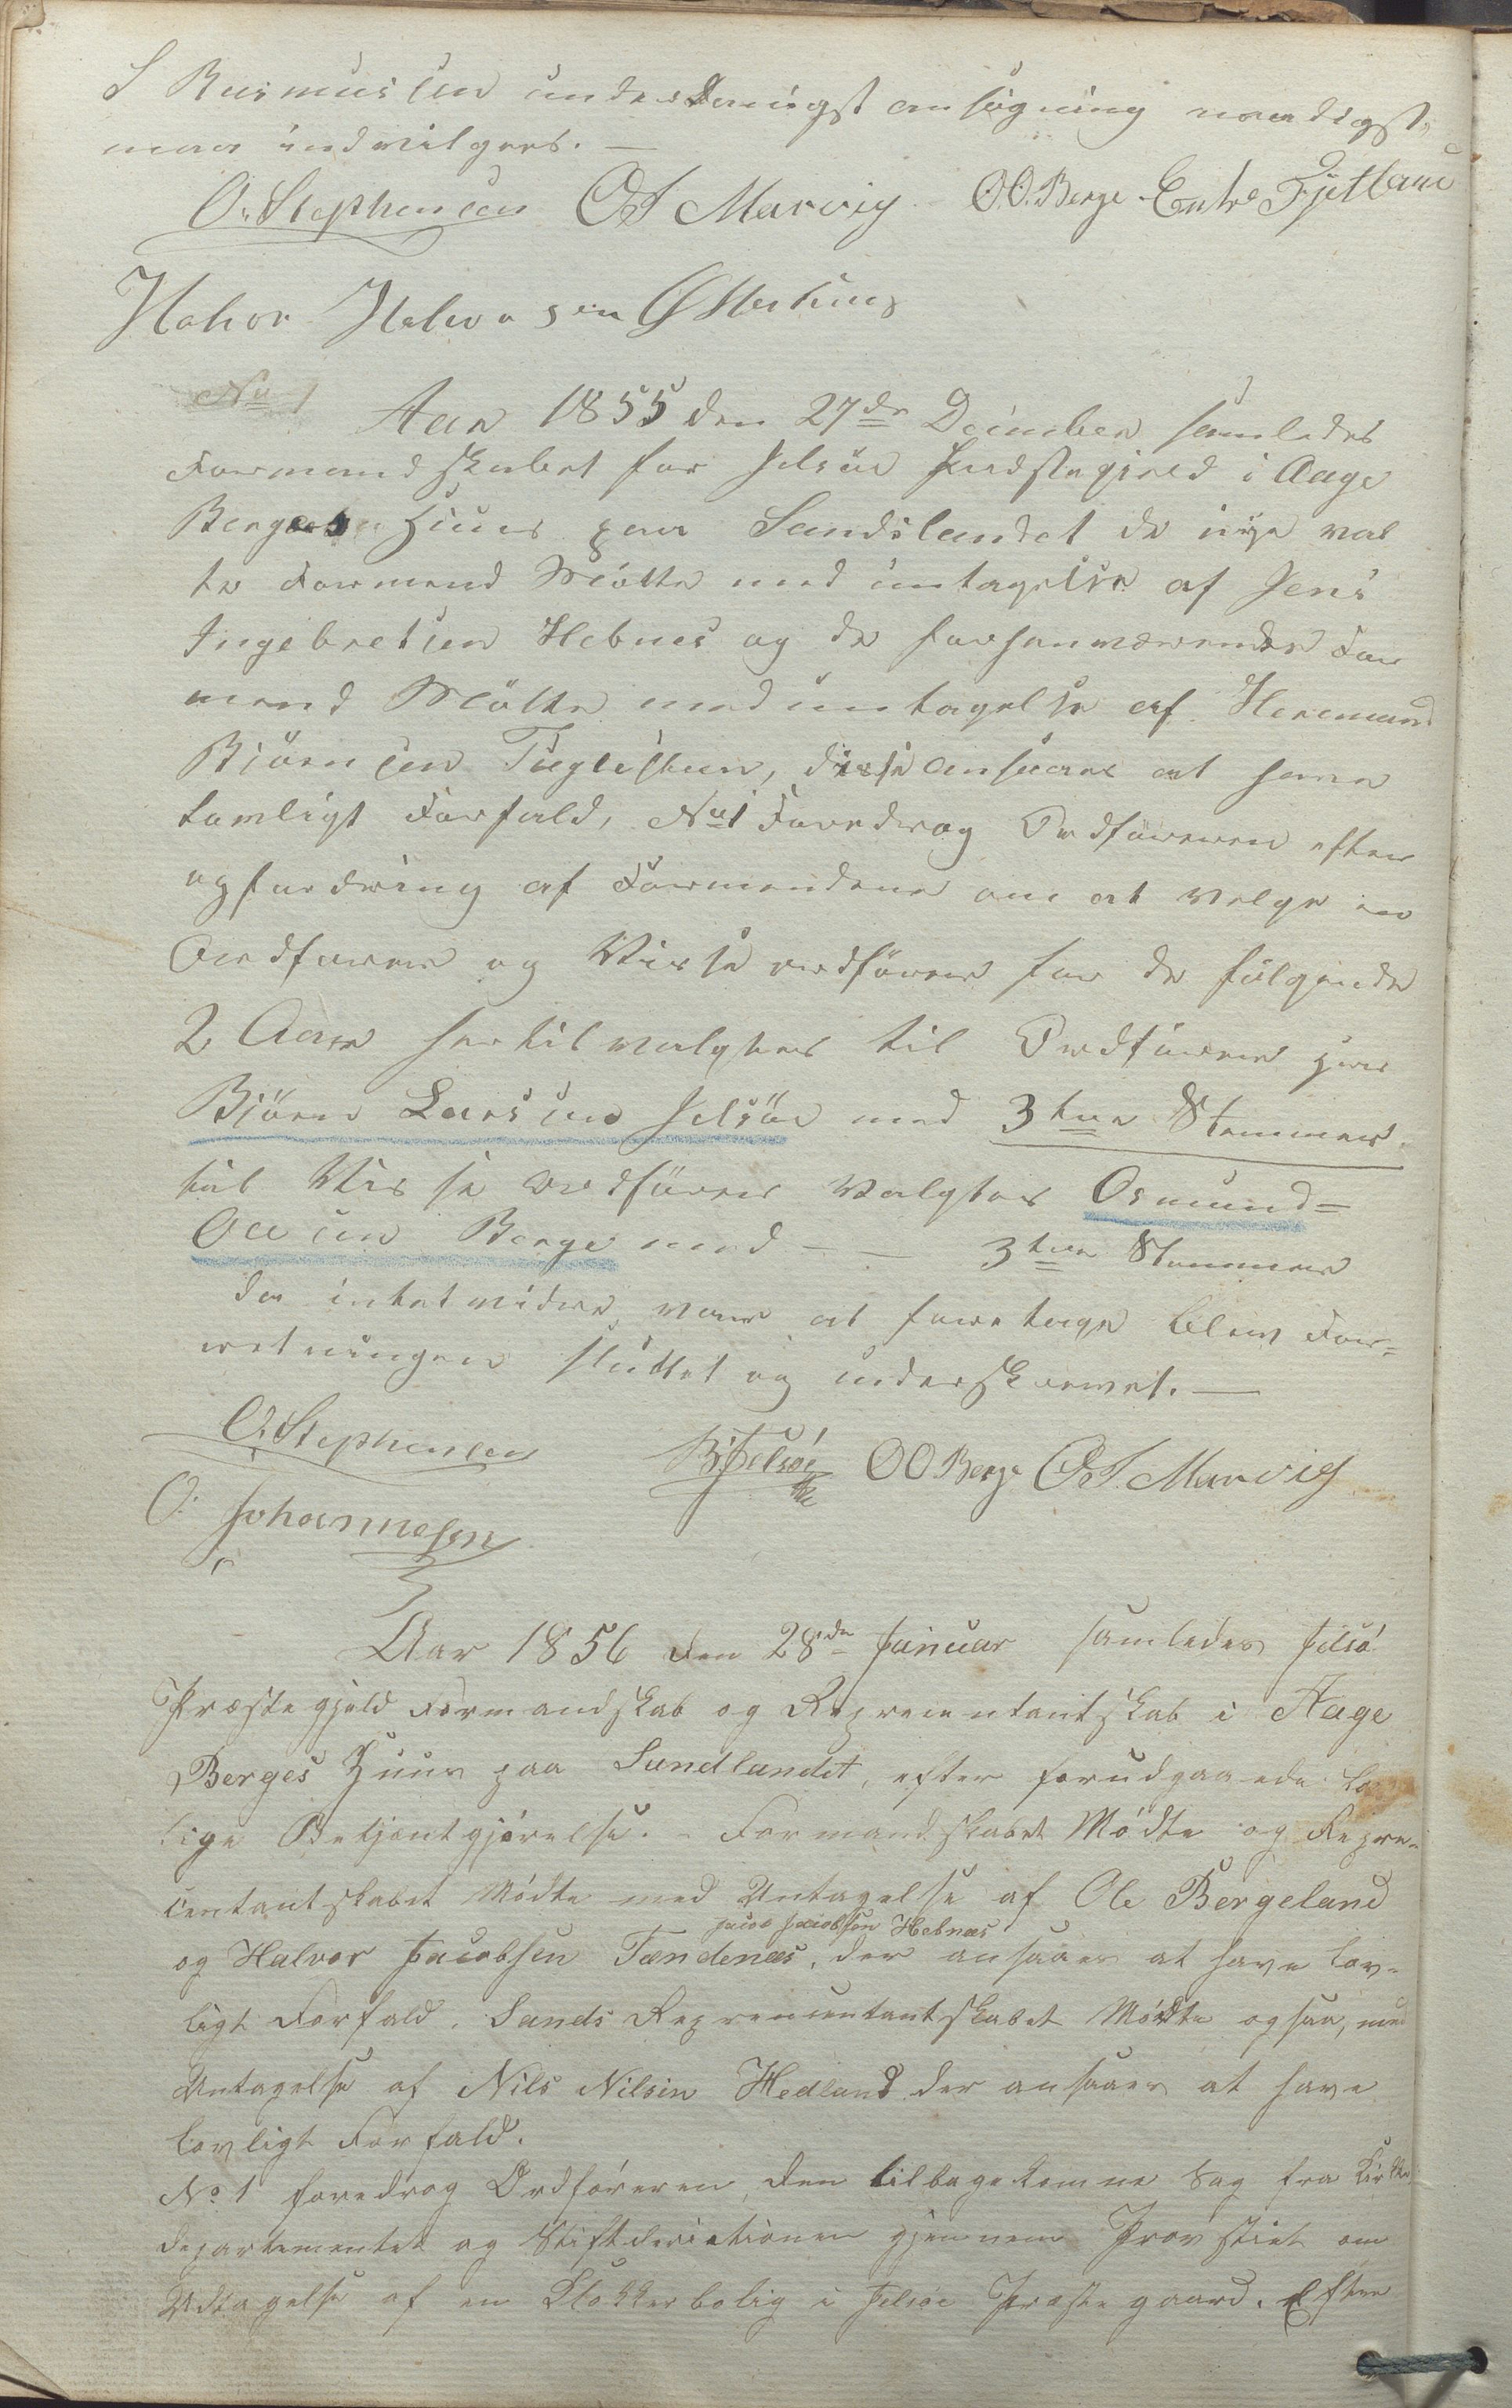 S Rasmusen underdanigst ansøgning naadigst
maa indvilges. —
O. Stephensen OS Marvig OO. Berge Endre Fjetland
Halvor Halvorsen
No 1 Aar 1855 den 27de Decimber samledes
Formandskabet for Jelsöe Prestegield i Aage
Berges Huus paa Sandslandet de nye val
te Formend Mötte med untagelse af Jens
Ingebretsen Hebnes og de forhenværende For
mend Mötte med untagelse af Heremand
Biörnsen disse ansaaes at have
lovligt Forfald, No 1 Foredrog Ordföreren efter
opfordring af Formendene om at velge en
Ordförer og Visse ordförer for de følgende
2 Aar hertil valgtes til Ordförer
Biörn Larsen Jelsöe med 3tre Stemmer.
til Visse ordförer valgtes Osmund=
Olsen Berge med — — 3tre Stemmer
da intet videre var at foretage blev For=
retningen sluttet og underskrevet. —
O. Stephensen B. Jelsöe OO Berge OS. Marvig
O. Johannesen
Aar 1856 den 28de Januar samledes Jelsö
Præstegjeld Formandskab og Representantskab i Aage
Berges Huus paa Sandlandet, efter forudgaaede lov
lige Bekjentgjørelse. – Formandskabet Mødte og Repre-
centantskabet Mødte med Untagelse af Ole Bergeland
Jacob Jacobsen Hebnæs
og Halvor Jacobsen Tændenæs, der ansaaes at have lov-
ligt Forfald. Sands Reprecentantskabet Mødte ogsaa, med
Untagelse af Nils Nilsin Hedland der ansaaes at have
lovligt Forfald.
No 1 foredrog Ordföreren, den tilbagekomne Sag fra Kirke
departementet og Stiftdirictionen gjennem Provstiet om
Udtagelse af en Klokkerbolig i Jelsöe Præstegaard. Efter